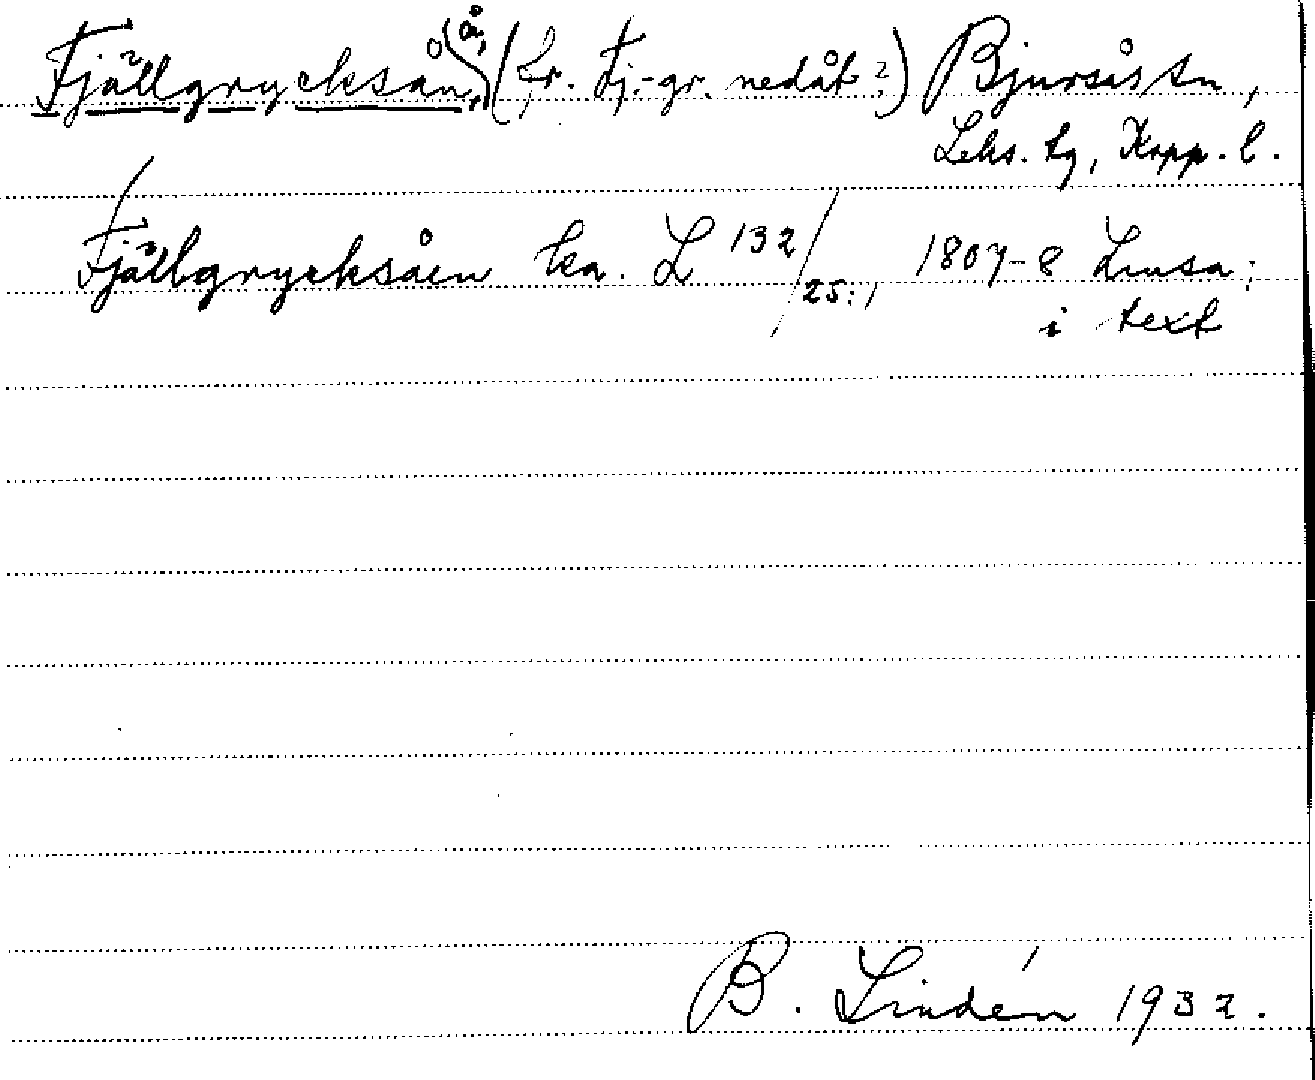 Fjällgrycksån, å, (fr. Fj.-gr. nedåt?) Bjursås sn,
Leks. tg, Kopp. l.
Fjällgrycksåen ka. L 132/25:1 1807-8 Linsa;
i text
B. Lindén 1932.